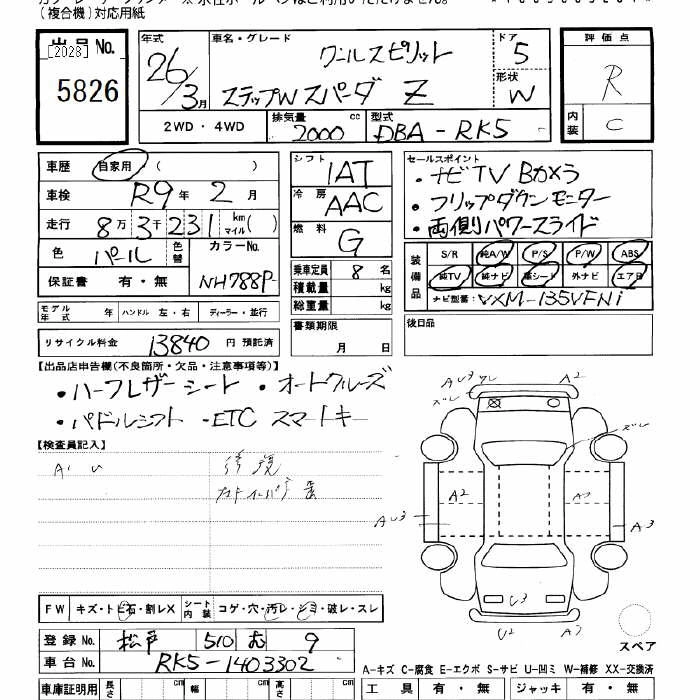 （複合機）対応用紙
出品No.
[2028]
5826
年式
26/3月
車名・グレード
クールスピリット
ステップWスパーダ Z
ドア
5
形状
W
2WD・4WD
排気量 cc
2000
型式
DBA-RK5
評価点
R
内装
C
車歴 自家用 （ ）
車検 R9年 2月
走行 8万3千231 km マイル( )
色 パール 色替 カラーNo. NH788P
保証書 有・無
シフト IAT
冷房 AAC
燃料 G
乗車定員 8名
積載量 kg
総重量 kg
書類期限
月 日
セールスポイント
・ナビTV Bカメラ
・フリップダウンモニター
・両側パワースライド
装備品
S/R 純A/W P/S P/W ABS
純TV 純ナビ 革シート 外ナビ エアB
ナビ型番: VXM-135VFNi
後日品
モデル年式 年 ハンドル 左・右 ディーラー・並行
リサイクル料金 13840 円 預託済
【出品店申告欄（不良箇所・欠品・注意事項等）】
・ハーフレザーシート ・オートクルーズ
・パドルシフト ・ETC スマートキー
【検査員記入】
A' U 修復
A2
A2
A3
U3
U2
FW キズ・トビ石・割レX シート内装 コゲ・穴・汚レ・シミ・破レ・スレ
登録No. 松戸 510 む 9
車台No. RK5-1403302
スペア
A-キズ C-腐食 E-エクボ S-サビ U-凹ミ W-補修 XX-交換済
車庫証明用 長さ cm 幅 cm 高さ cm
工具 有・無 ジャッキ 有・無